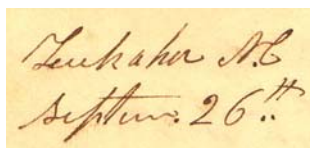 Tuckahoe N.C
Septem. 26th